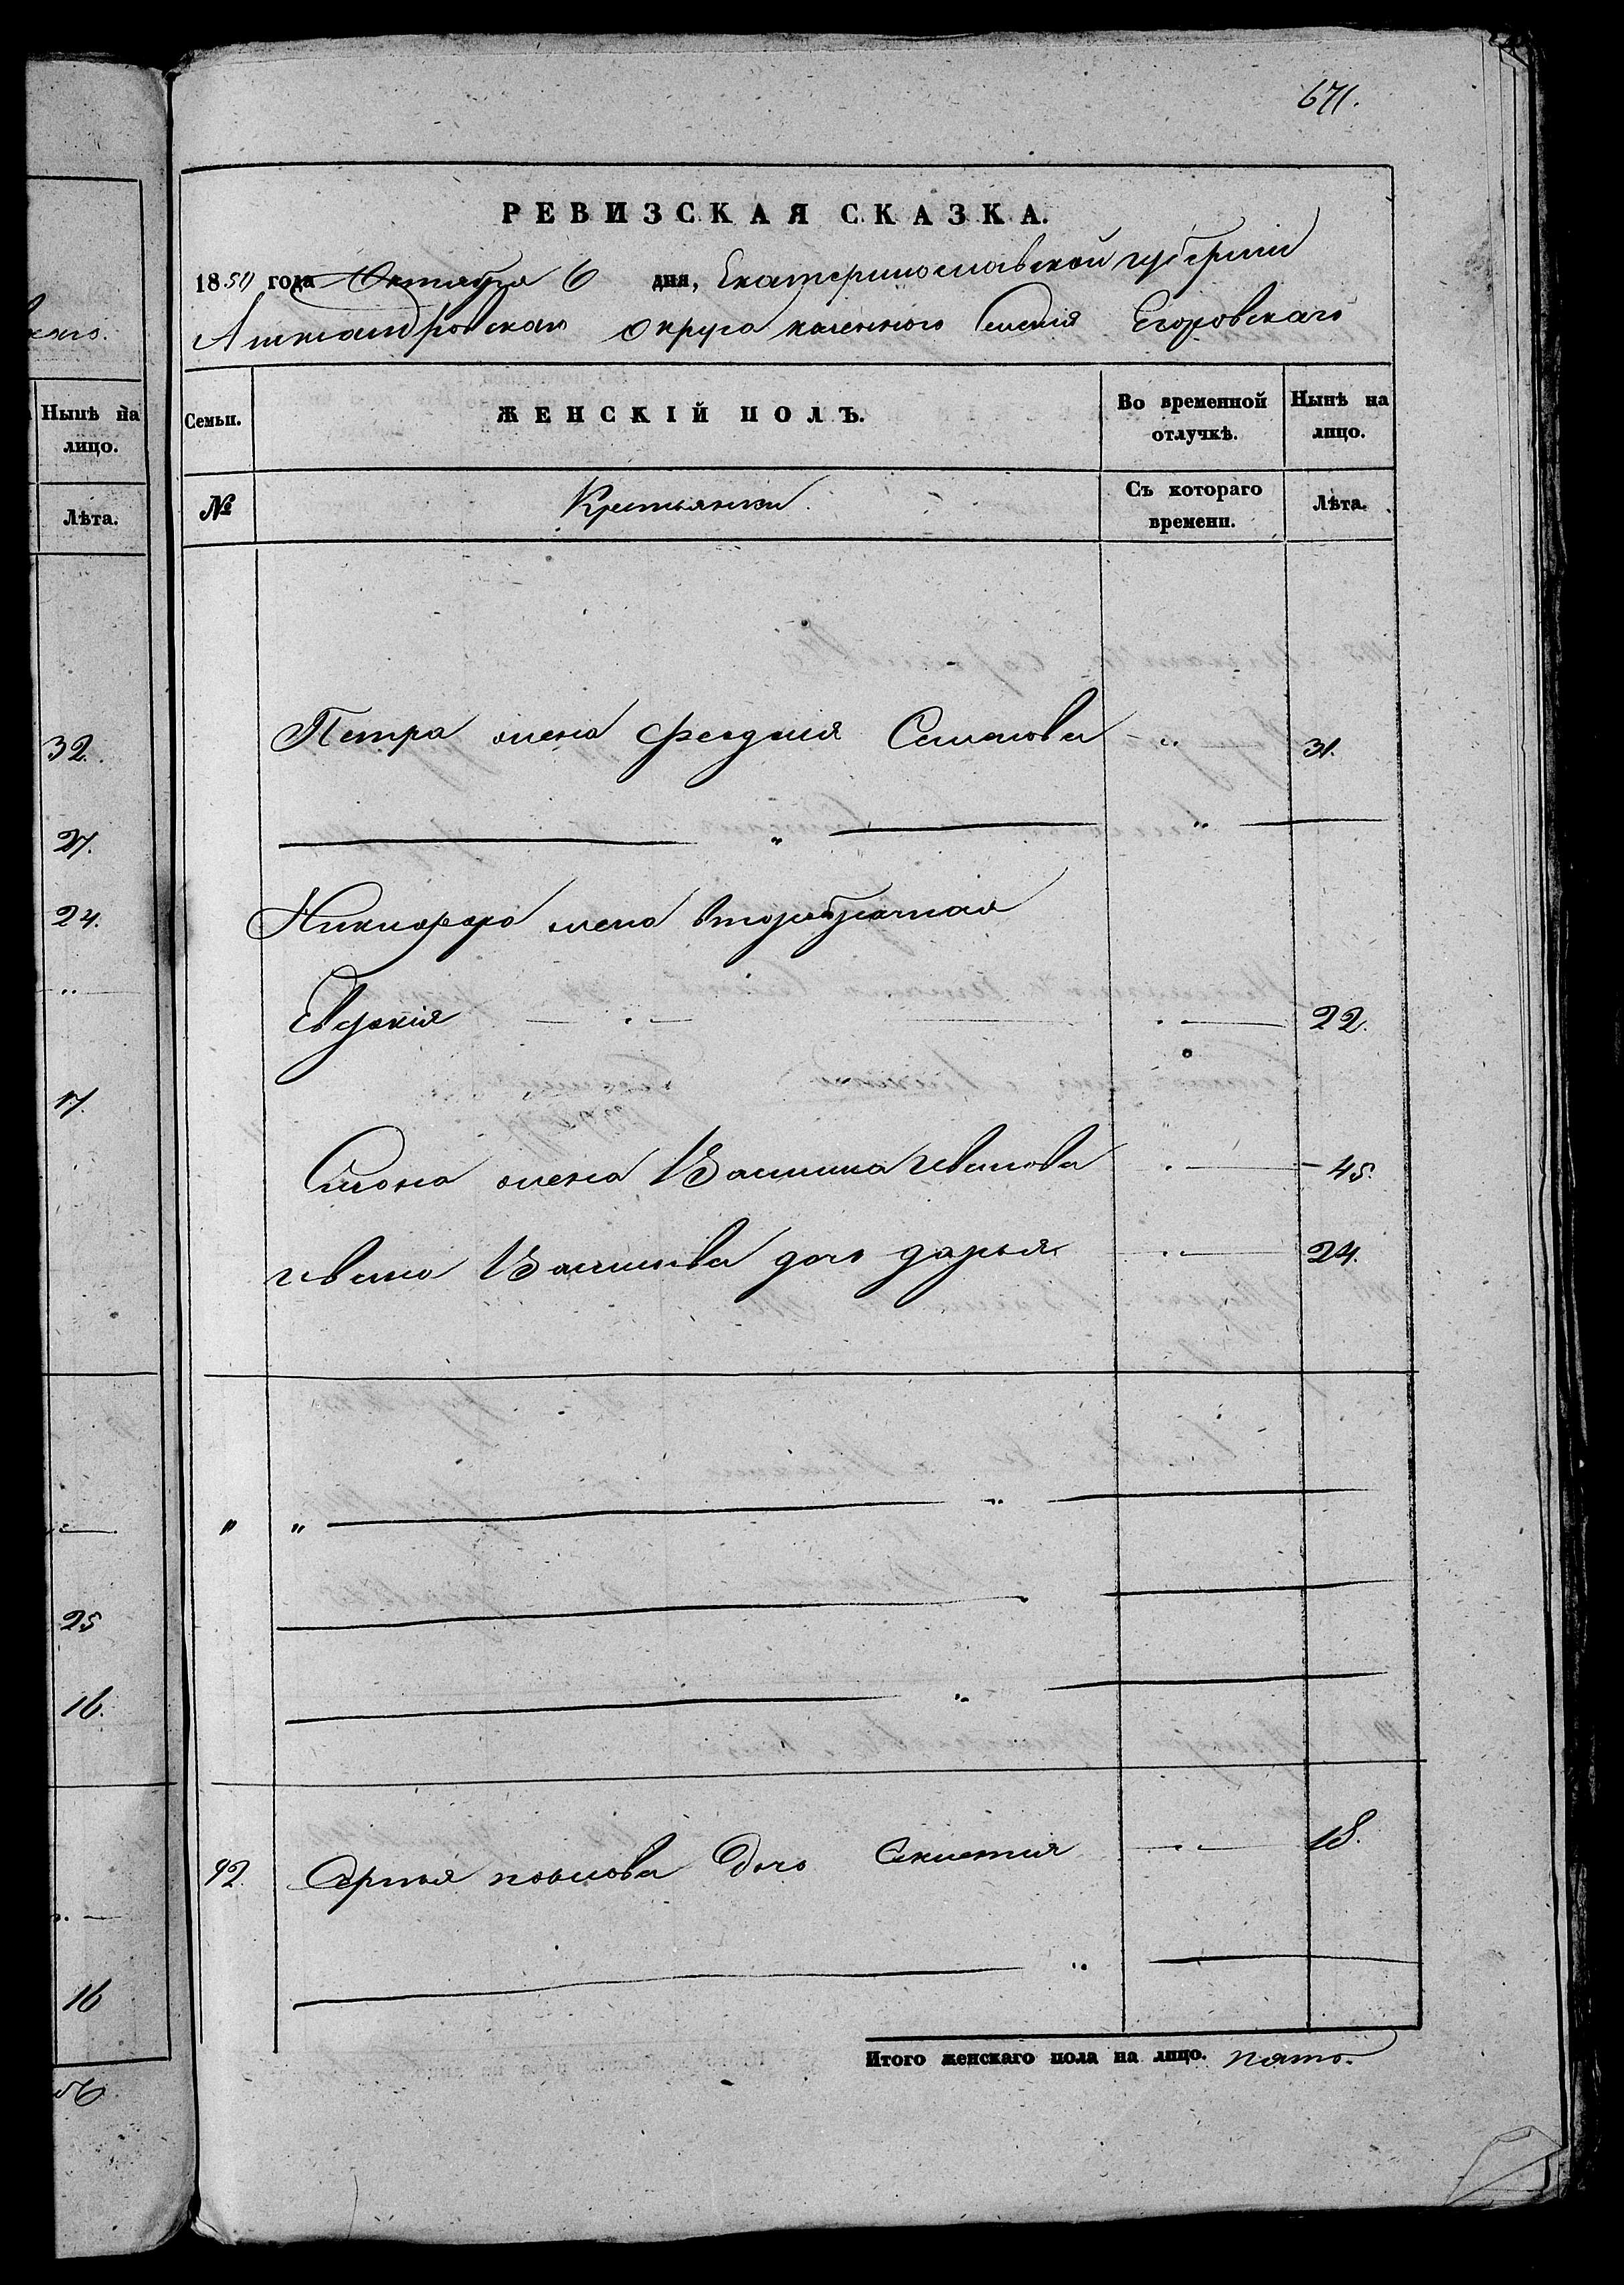 671.
РЕВИЗСКАЯ СКАЗКА.
1850 года Октября 6 дня, Екатеринославской губерніи
Александровскаго Округа казеннаго селенія Егоровскаго
Нынѣ на лицо.
Лѣта.
32.
27.
24.
17.
25
16.
16
Семьи. ЖЕНСКІЙ ПОЛЪ. Во временной отлучкѣ. Нынѣ на лицо.
№ Крестьянки Съ котораго времени. Лѣта.
Петра жена Феодосія Семенова - " 31.
" "
Никифора жена второбрачная
Евдокія " " 22.
жена Василиса Иванова " 45.
Ивана Васильева дочь Дарья " 24.
" " "
"
"
92. дочь " 18.
"
Итого женскаго пола на лицо. пять.